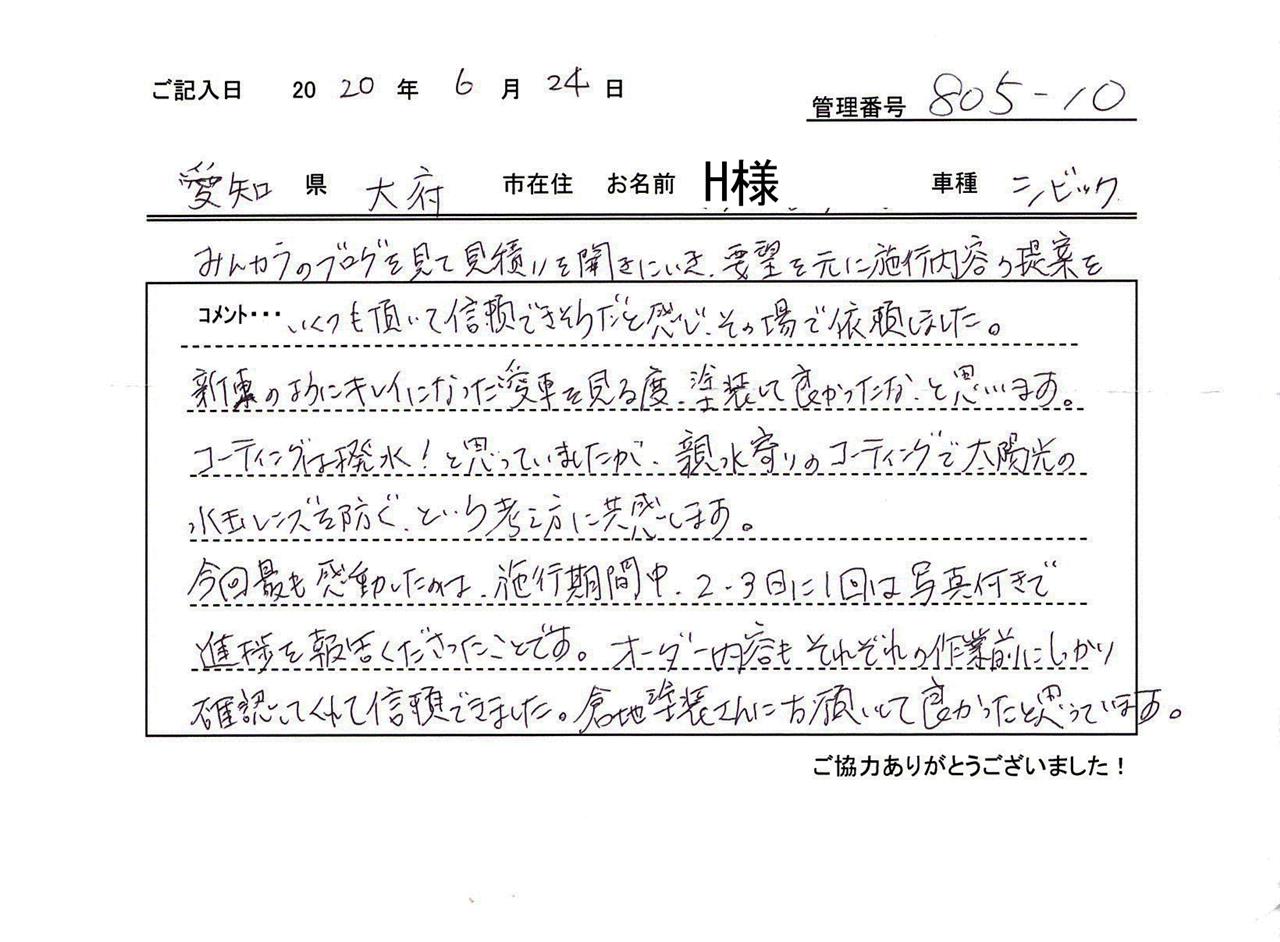 ご記入日 2020年 6月 24日
管理番号 805-10
愛知 県 大府 市在住 お名前 H様 車種 シビック
みんカラのブログを見て見積りを聞きにいき、要望を元に施行内容の提案を
コメント・・・いくつも頂いて信頼できそうだと感じ、その場で依頼しました。
新車のようにキレイになった愛車を見る度、塗装して良かったな、と思います。
コーティングは撥水！と思っていましたが、親水寄りのコーティングで太陽光の
水玉レンズを防ぐ、という考え方に共感します。
今回最も感動したのは、施行期間中、2・3日に1回は写真付きで
進捗を報告くださったことです。オーダー内容もそれぞれの作業前にしっかり
確認してくれて信頼できました。倉地塗装さんにお願いして良かったと思っています。
ご協力ありがとうございました！